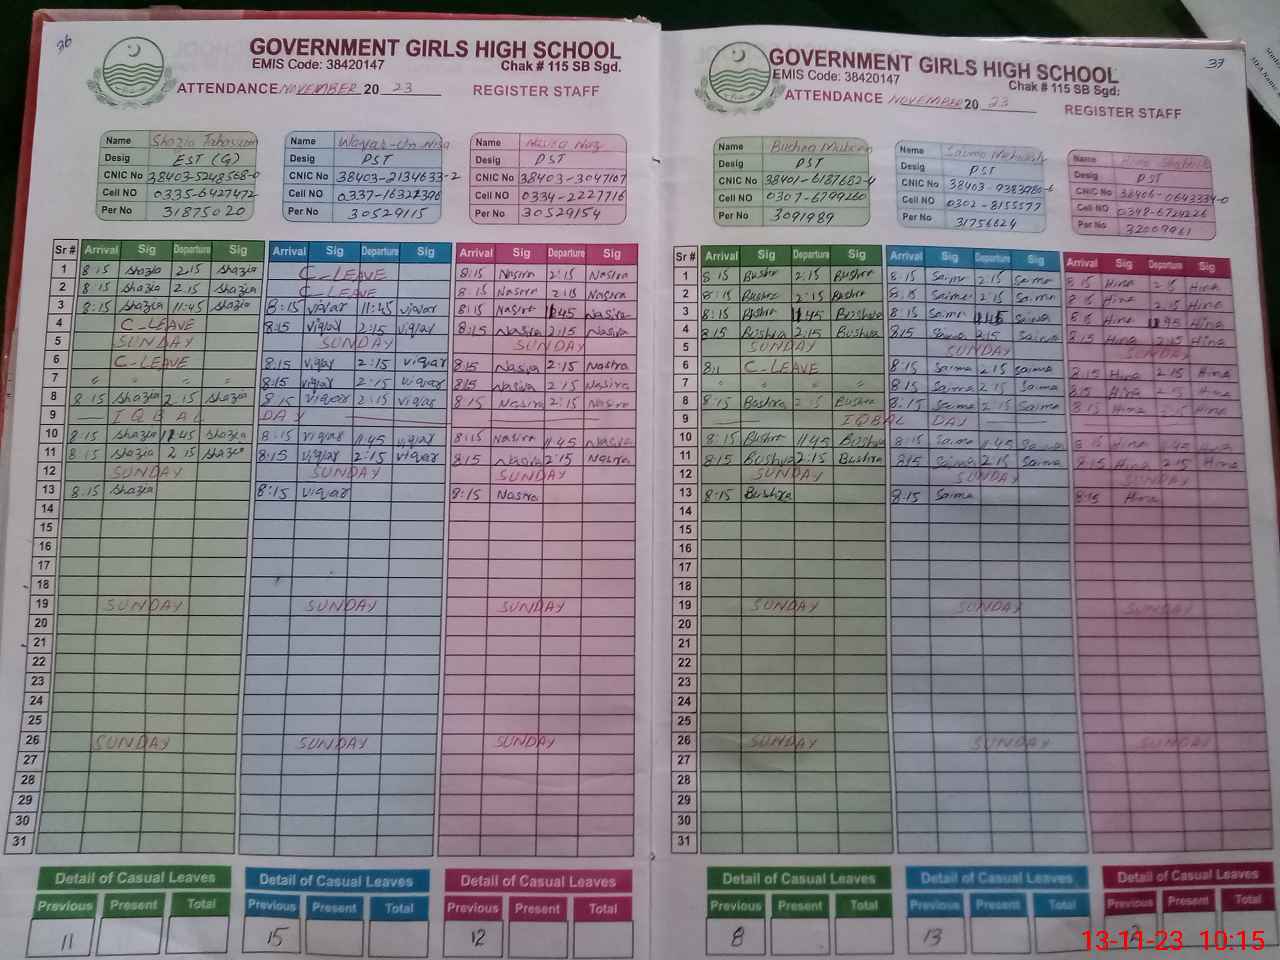 36
GOVERNMENT GIRLS HIGH SCHOOL
EMIS Code: 38420147 Chak # 115 SB Sgd.
ATTENDANCE NOVEMBER 20 23 REGISTER STAFF
Name Shazia Tabassum
Desig EST (G)
CNIC No 38403-5248568-0
Cell NO 0335-6427472
Per No 31875020
Name Waqar-Un-Nisa
Desig PST
CNIC No 38403-2134633-2
Cell NO 0337-1632
Per No 30529115
Name
Desig PST
CNIC No 38403-3047107
Cell NO 0334-2227716
Per No 30529154
Sr # Arrival Sig Departure Sig Arrival Sig Departure Sig Arrival Sig Departure Sig
1 8:15 Shazia 2:15 Shazia C-LEAVE 8:15 Nasira 2:15 Nasira
2 8:15 Shazia 2:15 Shazia C-LEAVE 8:15 Nasira 2:15 Nasira
3 8:15 Shazia 11:45 Shazia 8:15 viqar 11:45 viqar 8:15 Nasira 11:45 Nasira
4 C-LEAVE 8:15 viqar 2:15 viqar 8:15 Nasira 2:15 Nasira
5 SUNDAY SUNDAY SUNDAY
6 C-LEAVE 8:15 viqar 2:15 viqar 8:15 Nasira 2:15 Nasira
7 " " " " 8:15 viqar 2:15 viqar 8:15 Nasira 2:15 Nasira
8 8:15 Shazia 2:15 Shazia 8:15 viqar 2:15 viqar 8:15 Nasira 2:15 Nasira
9 IQBAL DAY
10 8:15 Shazia 11:45 Shazia 8:15 viqar 11:45 viqar 8:15 Nasira 11:45 Nasira
11 8:15 Shazia 2:15 Shazia 8:15 viqar 2:15 viqar 8:15 Nasira 2:15 Nasira
12 SUNDAY SUNDAY SUNDAY
13 8:15 Shazia 8:15 viqar 8:15 Nasira
14
15
16
17
18
19 SUNDAY SUNDAY SUNDAY
20
21
22
23
24
25
26 SUNDAY SUNDAY SUNDAY
27
28
29
30
31
Detail of Casual Leaves Detail of Casual Leaves Detail of Casual Leaves
Previous Present Total Previous Present Total Previous Present Total
11 15 12
37
GOVERNMENT GIRLS HIGH SCHOOL
EMIS Code: 38420147 Chak # 115 SB Sgd:
ATTENDANCE NOVEMBER 20 23 REGISTER STAFF
Name Bushra
Desig PST
CNIC No 38401-6187682-4
Cell NO 0307-6799260
Per No 3091989
Name Saima
Desig PST
CNIC No 38403-9383980-6
Cell NO 0302-8155577
Per No 31756624
Name Hina
Desig PST
CNIC No 38406-0643334-0
Cell NO 0348-6724226
Per No 32009961
Sr # Arrival Sig Departure Sig Arrival Sig Departure Sig Arrival Sig Departure Sig
1 8:15 Bushra 2:15 Bushra 8:15 Saima 2:15 Saima 8:15 Hina 2:15 Hina
2 8:15 Bushra 2:15 Bushra 8:15 Saima 2:15 Saima 8:15 Hina 2:15 Hina
3 8:15 Bushra 11:45 Bushra 8:15 Saima 11:45 Saima 8:15 Hina 11:45 Hina
4 8:15 Bushra 2:15 Bushra 8:15 Saima 2:15 Saima 8:15 Hina 2:15 Hina
5 SUNDAY SUNDAY SUNDAY
6 C-LEAVE 8:15 Saima 2:15 Saima 8:15 Hina 2:15 Hina
7 " " " " 8:15 Saima 2:15 Saima 8:15 Hina 2:15 Hina
8 8:15 Bushra 2:15 Bushra 8:15 Saima 2:15 Saima 8:15 Hina 2:15 Hina
9 IQBAL DAY
10 8:15 Bushra 11:45 Bushra 8:15 Saima 11:45 Saima 8:15 Hina 11:45 Hina
11 8:15 Bushra 2:15 Bushra 8:15 Saima 2:15 Saima 8:15 Hina 2:15 Hina
12 SUNDAY SUNDAY SUNDAY
13 8:15 Bushra 8:15 Saima 8:15 Hina
14
15
16
17
18
19 SUNDAY SUNDAY SUNDAY
20
21
22
23
24
25
26 SUNDAY SUNDAY SUNDAY
27
28
29
30
31
Detail of Casual Leaves Detail of Casual Leaves Detail of Casual Leaves
Previous Present Total Previous Present Total Previous Present Total
8 13
13-11-23 10:15